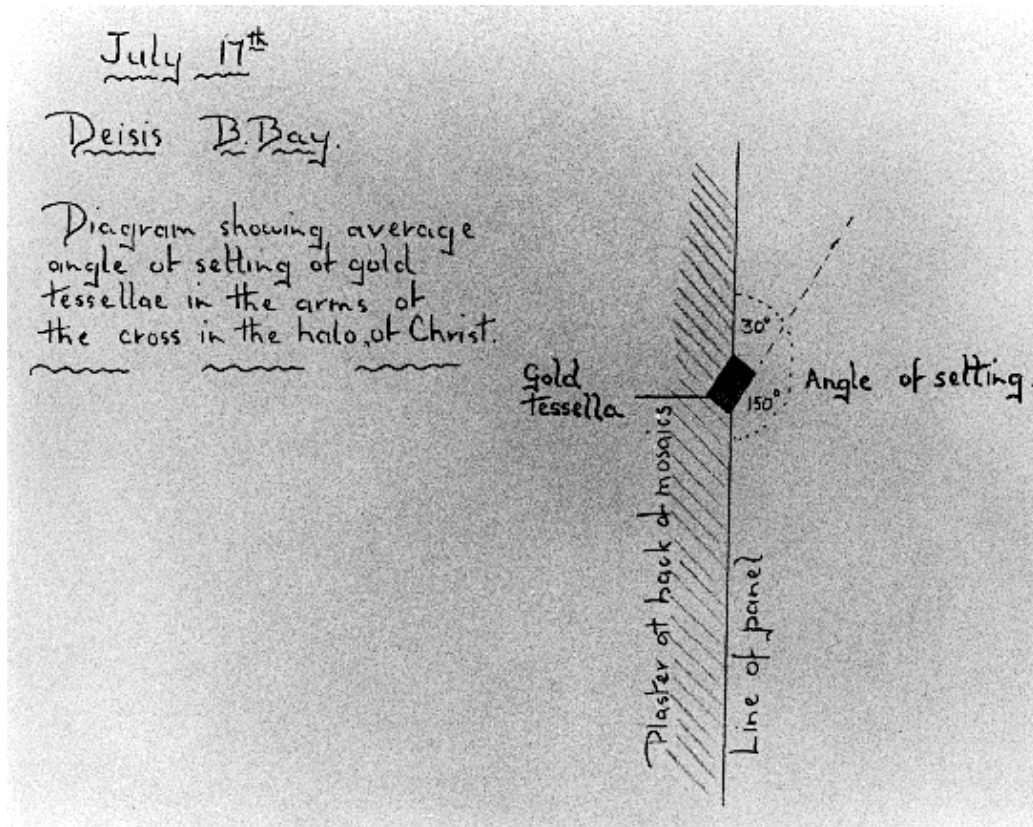 July 17th
Deisis B.Bay.
Diagram showing average
angle of setting of gold
tessellae in the arms of
the cross in the halo, of Christ.
30°
Gold
tessella
150°
Angle of setting.
Plaster at back of mosaics
Line of panel